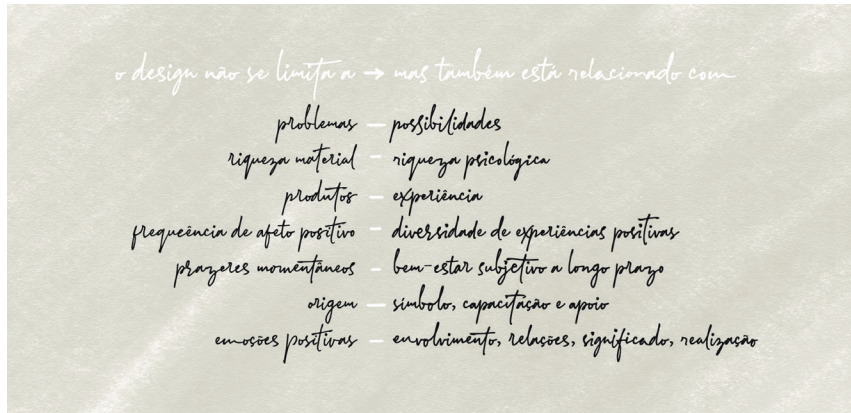 o design não se limita a → mas também está relacionado com
problemas — possibilidades
riqueza material — riqueza psicológica
produtos — experiência
frequeência de afeto positivo — diversidade de experiências positivas
prazeres momentâneos — bem-estar subjetivo a longo prazo
origem — símbolo, capacitação e apoio
emoções positivas — envolvimento, relações, significado, realização